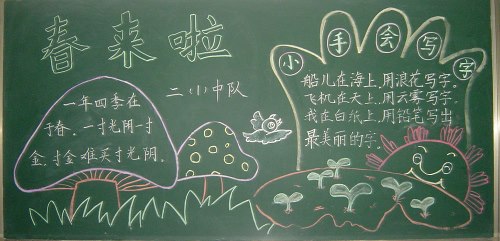 春来啦
二(1)中队
一年四季在
于春,一寸光阴一寸
金,寸金难买寸光阴。
小手会写字
船儿在海上,用浪花写字。
飞机在天上,用云雾写字。
我在白纸上,用铅笔写出
最美丽的字。